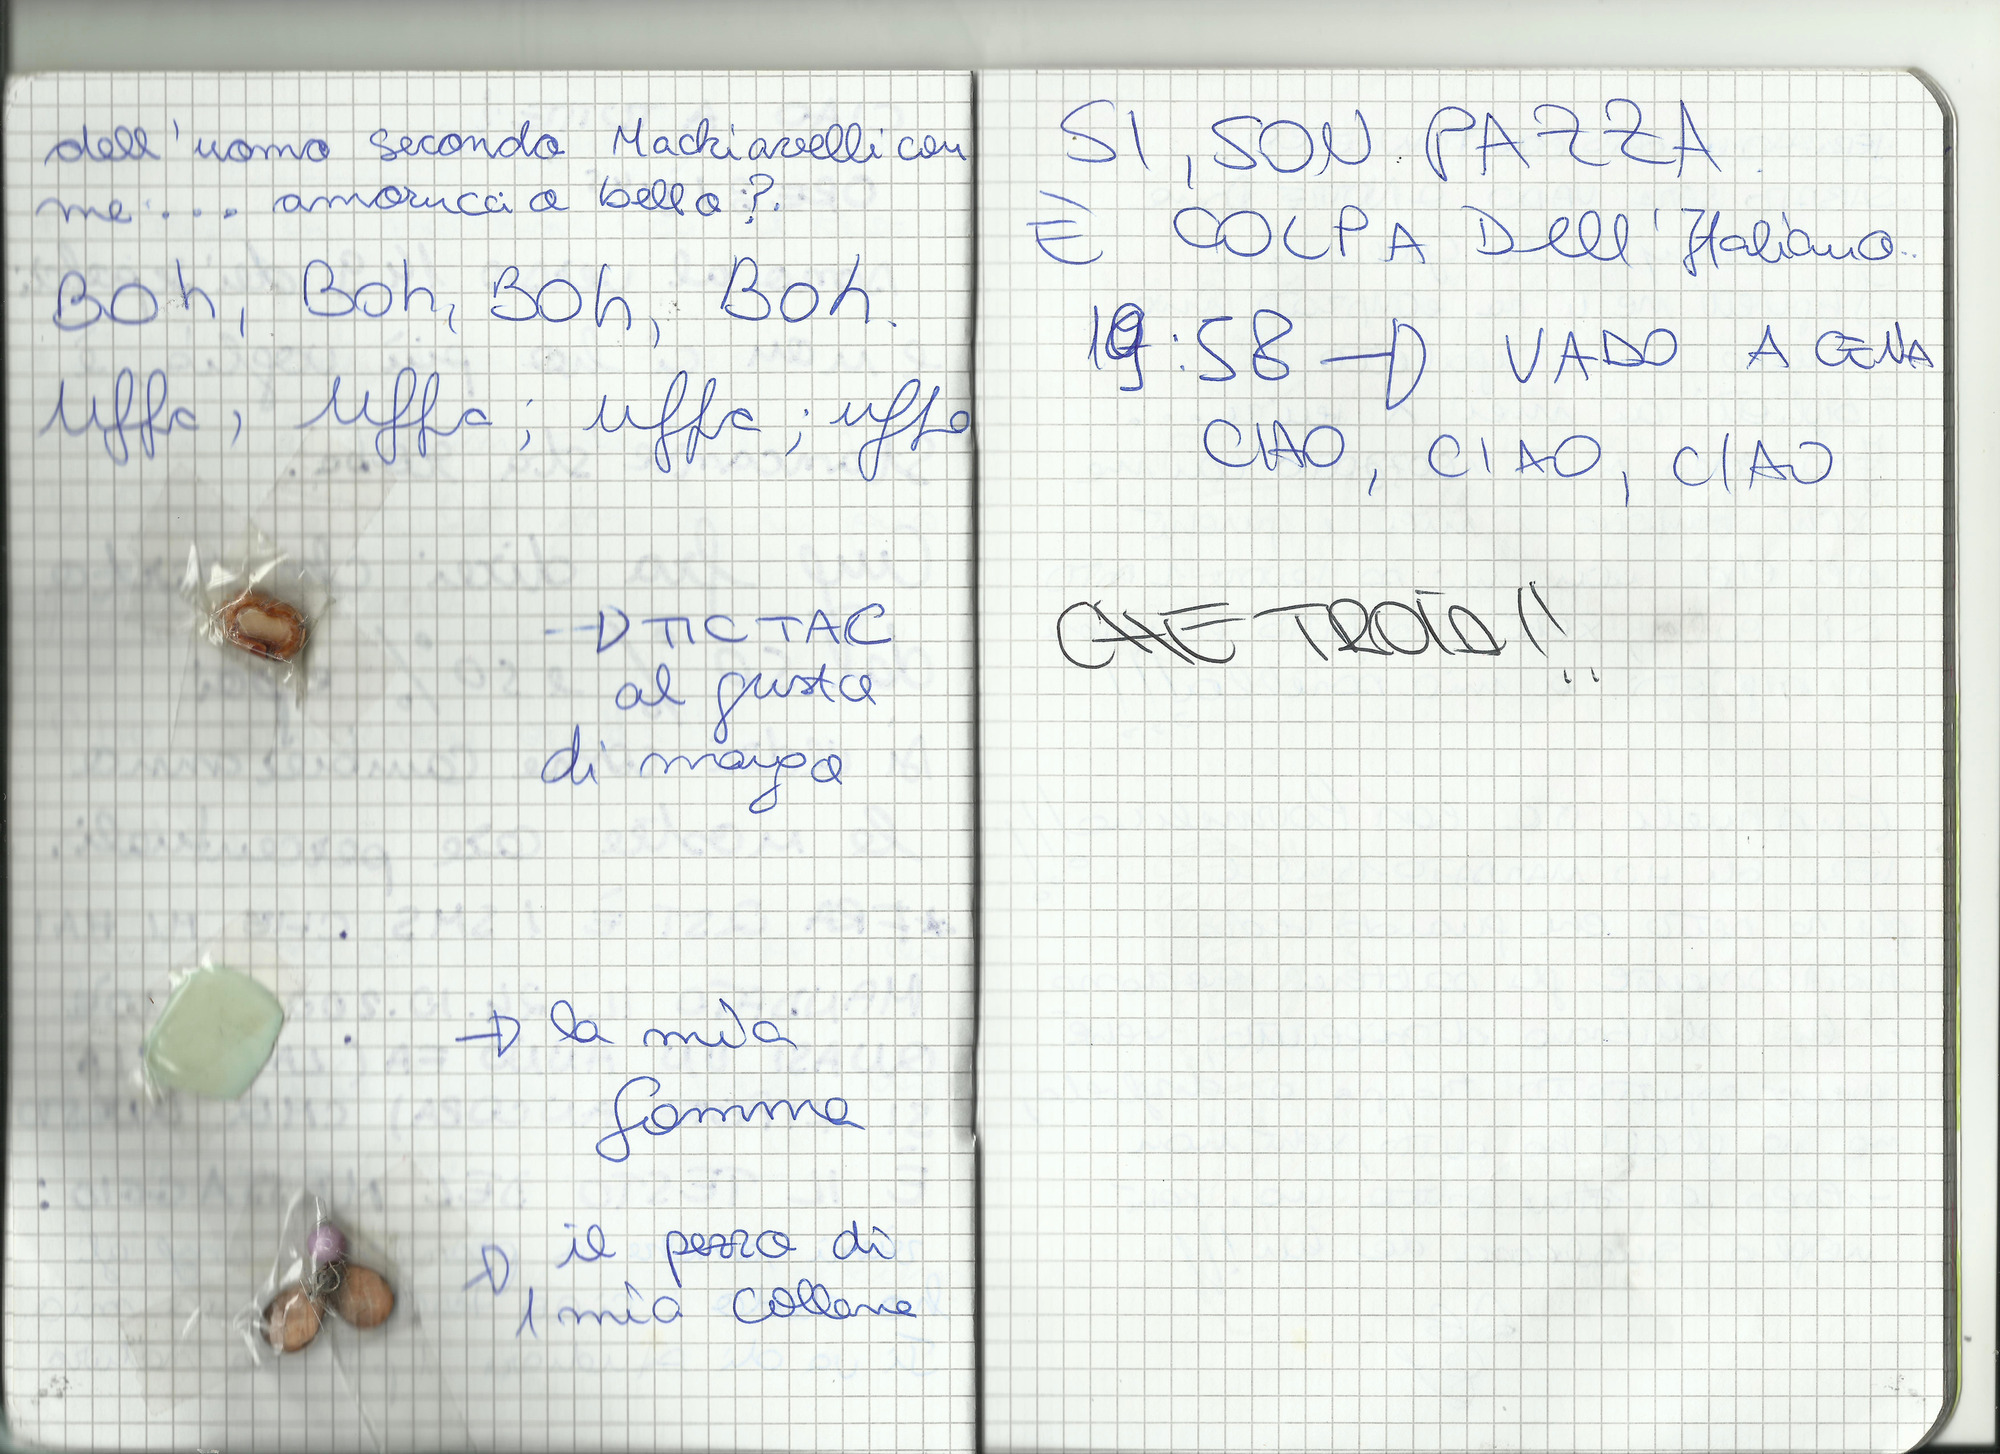 dell'uomo secondo Machiavelli con
me... amoruccio bello?.
BOh, BOh, BOh, BOh.
Uffa; Uffa; uffa; uffa
→ TIC TAC
al gusto
di mayo
→ la mia
gomma
→ il pezzo di
1 mia collana
SI, SON PAZZA
È COLPA Dell'Italiano..
19:58 → VADO A CENA
CIAO, CIAO, CIAO
CHE TROIA!!